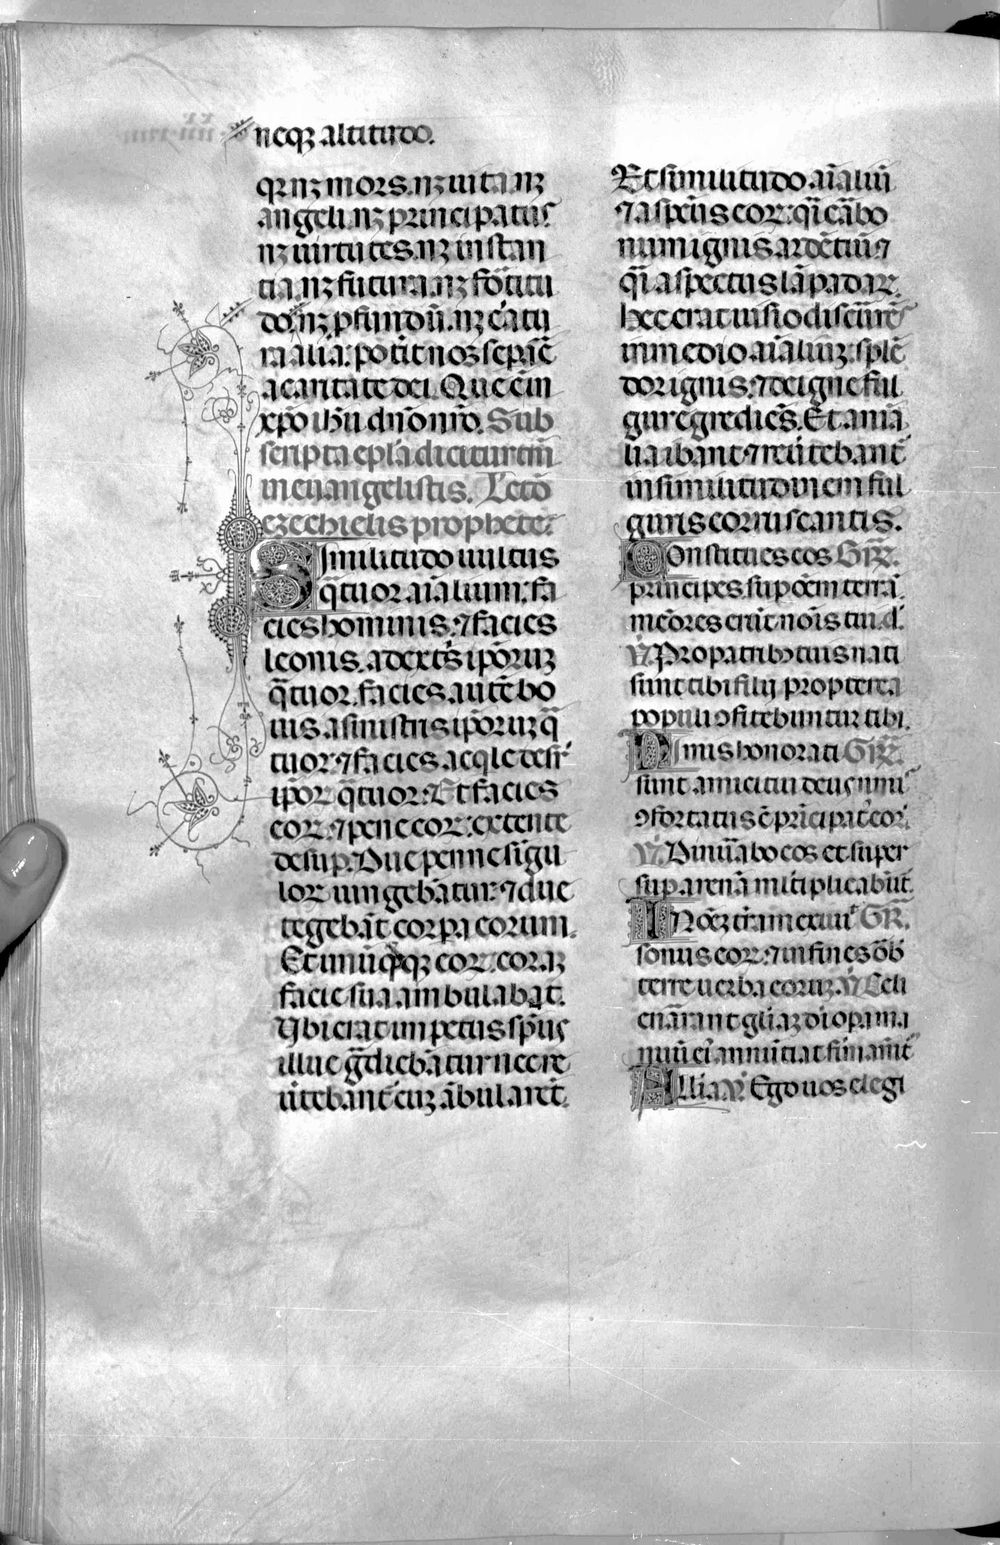 neqꝫ altitudo.
qr nꝫ mors. nꝫ uita nꝫ
angeli. nꝫ principatus
nꝫ uirtutes. nꝫ instan
tia. nꝫ futura. nꝫ fo᷑titu
do. nꝫ ꝓfundū. nꝫ c᷑atu
ra alia: pot᷑it nos sepa᷑e
a caritate dei. Que ē in
xp̄o ih̄u dn̄o nr̄o. Sub
scripta epl̄a dicitur in
in euangelistis. Lectō
ezechielis prophete.
Similitudo uultus
q̄tuor aīalium: fa
cies hominis. ⁊ facies
leonis. a dext᷑s ip̄oruꝫ
q̄tuor. facies aut̄ bo
uis. a sinistris ip̄oruꝫ q̄
tuor. ⁊ facies acq̄le desr᷑
ip̄oꝝ q̄tuor. Et facies
eoꝝ. ⁊ pene eoꝝ: extente
desup̱. Due penne singu
loꝝ iungebātur. ⁊ due
tegebāt corpa eorum.
Et unūqꝫqꝫ eoꝝ. coraꝫ
facie sua ambulabat.
Ubi erat impetus sp̄us
illuc g̃diebātur nec re
u᷑tebant᷑ cuꝫ ābularēt.
Et similitudo aīaliū
⁊ aspectus eoꝝ: q̄i carbo
num ignis ardētiū ⁊
q̄i aspectus lāpadaꝝ.
hec erat uisio discur᷑es
in medio aīaliuꝫ: splē
dor ignis. ⁊ de igne ful
gur egrediēs. Et anīa
lia ibant ⁊ reu᷑tebant᷑
in similitudinem ful
guris corruscantis.
Constitues eos Gr̄.
principes. sup om̄em terrā.
memores erūt nom̄is tui d᷑.
V᷑. Pro patribꝫ tuis nati
sunt tibi filij propterea
populi ꝯfitebuntur tibi.
Nimis honorati Gr̄.
sunt amici tui deus nimis
ꝯfortatus ē prīcipat᷑ eoꝝ.
V᷑. Dinūabo eos et super
sup arenā m᷑tiplicabūt᷑.
In om̄eꝫ terram exiuit Gr̄.
sonus eoꝝ: ⁊ in fines orb᷑
terre uerba eoruꝫ. V᷑. Celi
enarrant gliaꝫ dī opa ma
nuū ei᷑ annūtiat firmam̄t᷑
Allīa. V᷑. Ego uos elegi